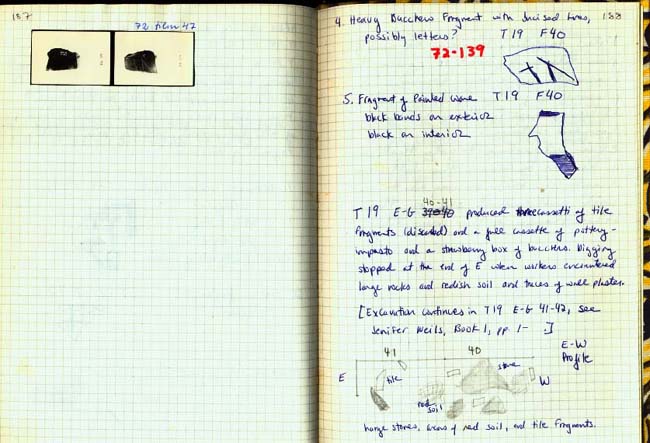 187
72 film 47
4. Heavy Bucchero Fragment with Incised lines, 188
possibly letters? T 19 F 40
72-139
5. Fragment of Painted ware T 19 F 40
black bands on exterior
black on interior
40-41
T 19 E-G 39-40 produced three cassetti of tile
fragments (discarded) and a full cassette of pottery -
impasto and a strawberry box of bucchero. Digging
stopped at the end of E when workers encountered
large rocks and redish soil and traces of wall plaster.
[Excavation continues in T 19 E-G 41-42, see
Jenifer Neils, Book 1, pp 1- .]
E-W
Profile
41 40
E tile stone W
red soil
Large stones, areas of red soil, and tile fragments.